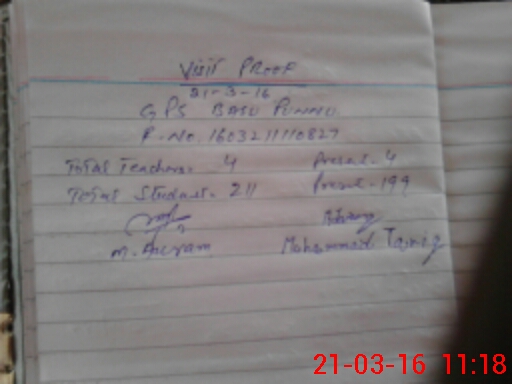 Visit Proof
21-3-16
GPS Basu Punnu
R-No. 1603211110827
Total Teachers. 4 Present. 4
Total Student. 211 Present-199
M. Akram Mohammad
21-03-16 11:18